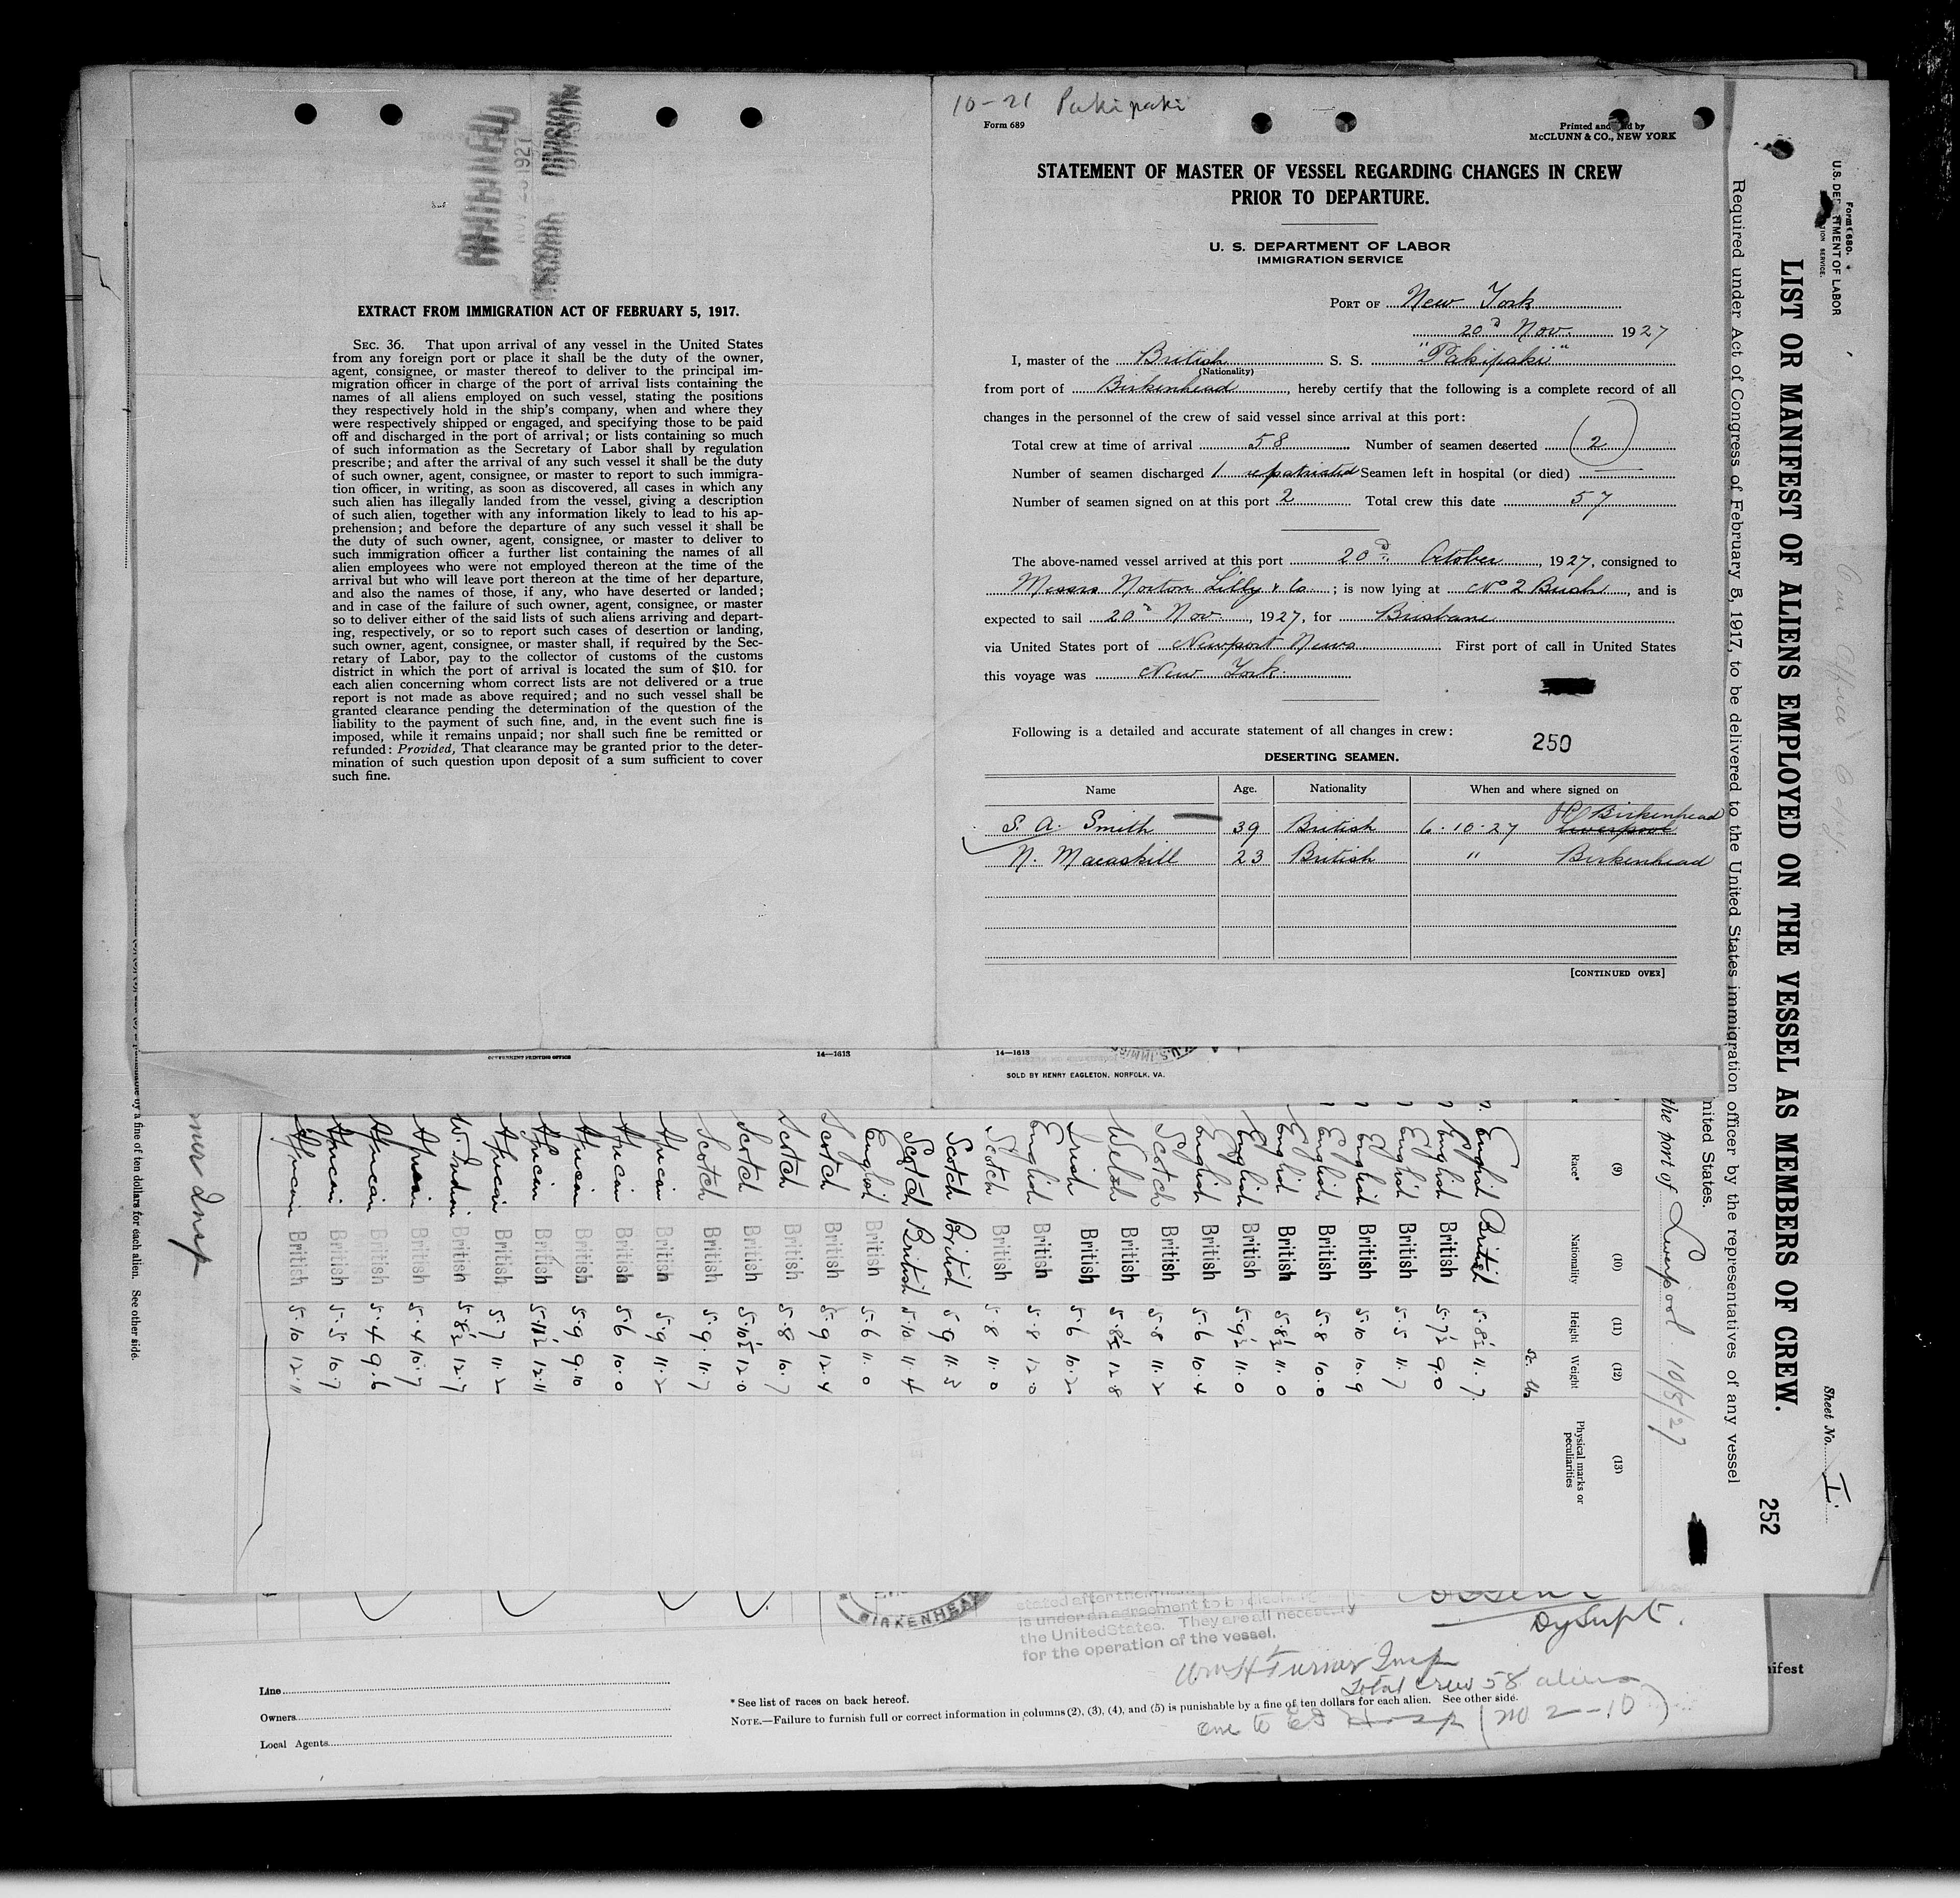 EXAMINED
NOV 23 1927
RECORD DIVISION
EXTRACT FROM IMMIGRATION ACT OF FEBRUARY 5, 1917.
SEC. 36. That upon arrival of any vessel in the United States
from any foreign port or place it shall be the duty of the owner,
agent, consignee, or master thereof to deliver to the principal im-
migration officer in charge of the port of arrival lists containing the
names of all aliens employed on such vessel, stating the positions
they respectively hold in the ship's company, when and where they
were respectively shipped or engaged, and specifying those to be paid
off and discharged in the port of arrival; or lists containing so much
of such information as the Secretary of Labor shall by regulation
prescribe; and after the arrival of any such vessel it shall be the duty
of such owner, agent, consignee, or master to report to such immigra-
tion officer, in writing, as soon as discovered, all cases in which any
such alien has illegally landed from the vessel, giving a description
of such alien, together with any information likely to lead to his ap-
prehension; and before the departure of any such vessel it shall be
the duty of such owner, agent, consignee, or master to deliver to
such immigration officer a further list containing the names of all
alien employees who were not employed thereon at the time of the
arrival but who will leave port thereon at the time of her departure,
and also the names of those, if any, who have deserted or landed;
and in case of the failure of such owner, agent, consignee, or master
so to deliver either of the said lists of such aliens arriving and depart-
ing, respectively, or so to report such cases of desertion or landing,
such owner, agent, consignee, or master shall, if required by the Sec-
retary of Labor, pay to the collector of customs of the customs
district in which the port of arrival is located the sum of $10. for
each alien concerning whom correct lists are not delivered or a true
report is not made as above required; and no such vessel shall be
granted clearance pending the determination of the question of the
liability to the payment of such fine, and, in the event such fine is
imposed, while it remains unpaid; nor shall such fine be remitted or
refunded: Provided, That clearance may be granted prior to the deter-
mination of such question upon deposit of a sum sufficient to cover
such fine.
GOVERNMENT PRINTING OFFICE 14—1613
10-21 Pakipaki
Form 689
Printed and by
McCLUNN & CO., NEW YORK
STATEMENT OF MASTER OF VESSEL REGARDING CHANGES IN CREW
PRIOR TO DEPARTURE.
U. S. DEPARTMENT OF LABOR
IMMIGRATION SERVICE
PORT OF New York
20d Nov. 1927
I, master of the British S. S. "Pakipaki"
(Nationality)
from port of Birkenhead, hereby certify that the following is a complete record of all
changes in the personnel of the crew of said vessel since arrival at this port:
Total crew at time of arrival 58 Number of seamen deserted 2
Number of seamen discharged 1 repatriated Seamen left in hospital (or died)
Number of seamen signed on at this port 2 Total crew this date 57
The above-named vessel arrived at this port 20d October, 1927, consigned to
Messrs Norton Lilly & Co; is now lying at No 2 Bush, and is
expected to sail 20d Nov., 1927, for Brisbane
via United States port of Newport News First port of call in United States
this voyage was New York.
Following is a detailed and accurate statement of all changes in crew:
250
DESERTING SEAMEN.
Name Age. Nationality When and where signed on
S. A. Smith 39 British 6.10.27 Liverpool Birkenhead
N. Macaskill 23 British " Birkenhead
[CONTINUED OVER]
14—1613
SOLD BY HENRY EAGLETON, NORFOLK, VA.
Form 680.
U.S. DEPARTMENT OF LABOR
Sheet No. I.
LIST OR MANIFEST OF ALIENS EMPLOYED ON THE VESSEL AS MEMBERS OF CREW.
252
Required under Act of Congress of February 5, 1917, to be delivered to the United States immigration officer by the representatives of any vessel
nited States.
the port of Liverpool. 10/8/27
(9) (10) (11) (12) (13)
Race* Nationality Height Weight Physical marks or
peculiarities
St. Lbs
English British 5.8½ 11.7
English British 5.7½ 9.0
English British 5.5 11.7
English British 5.10 10.9
English British 5.8 10.0
English British 5.8½ 11.0
English British 5.9½ 11.0
English British 5.6 10.4
Scotch British 5.8 11.2
Welsh British 5.8½ 12.8
Irish British 5.6 10.2
English British 5.8 12.0
Scotch British 5.8 11.0
Scotch British 5.9 11.3
Scotch British 5.10 11.4
English British 5.6 11.0
Scotch British 5.9 12.4
Scotch British 5.8 10.7
Scotch British 5.10½ 12.0
Scotch British 5.9 11.7
African British 5.9 11.2
African British 5.6 10.0
African British 5.9 9.10
African British 5.11½ 12.11
African British 5.7 11.2
W. Indian British 5.8½ 12.7
African British 5.4 10.7
African British 5.4 9.6
African British 5.5 10.7
African British 5.10 12.11
ner Insp
by a fine of ten dollars for each alien. See other side.
BIRKENHEAD
stated after their
is under an agreement to be
the United States. They are all necessary
for the operation of the vessel.
Dy Supt.
Wm H Turner Insp
Total crew 58 aliens
Line
Owners
Local Agents
* See list of races on back hereof.
NOTE.—Failure to furnish full or correct information in columns (2), (3), (4), and (5) is punishable by a fine of ten dollars for each alien. See other side.
one to EI Hosp (no 2-10)
ifest